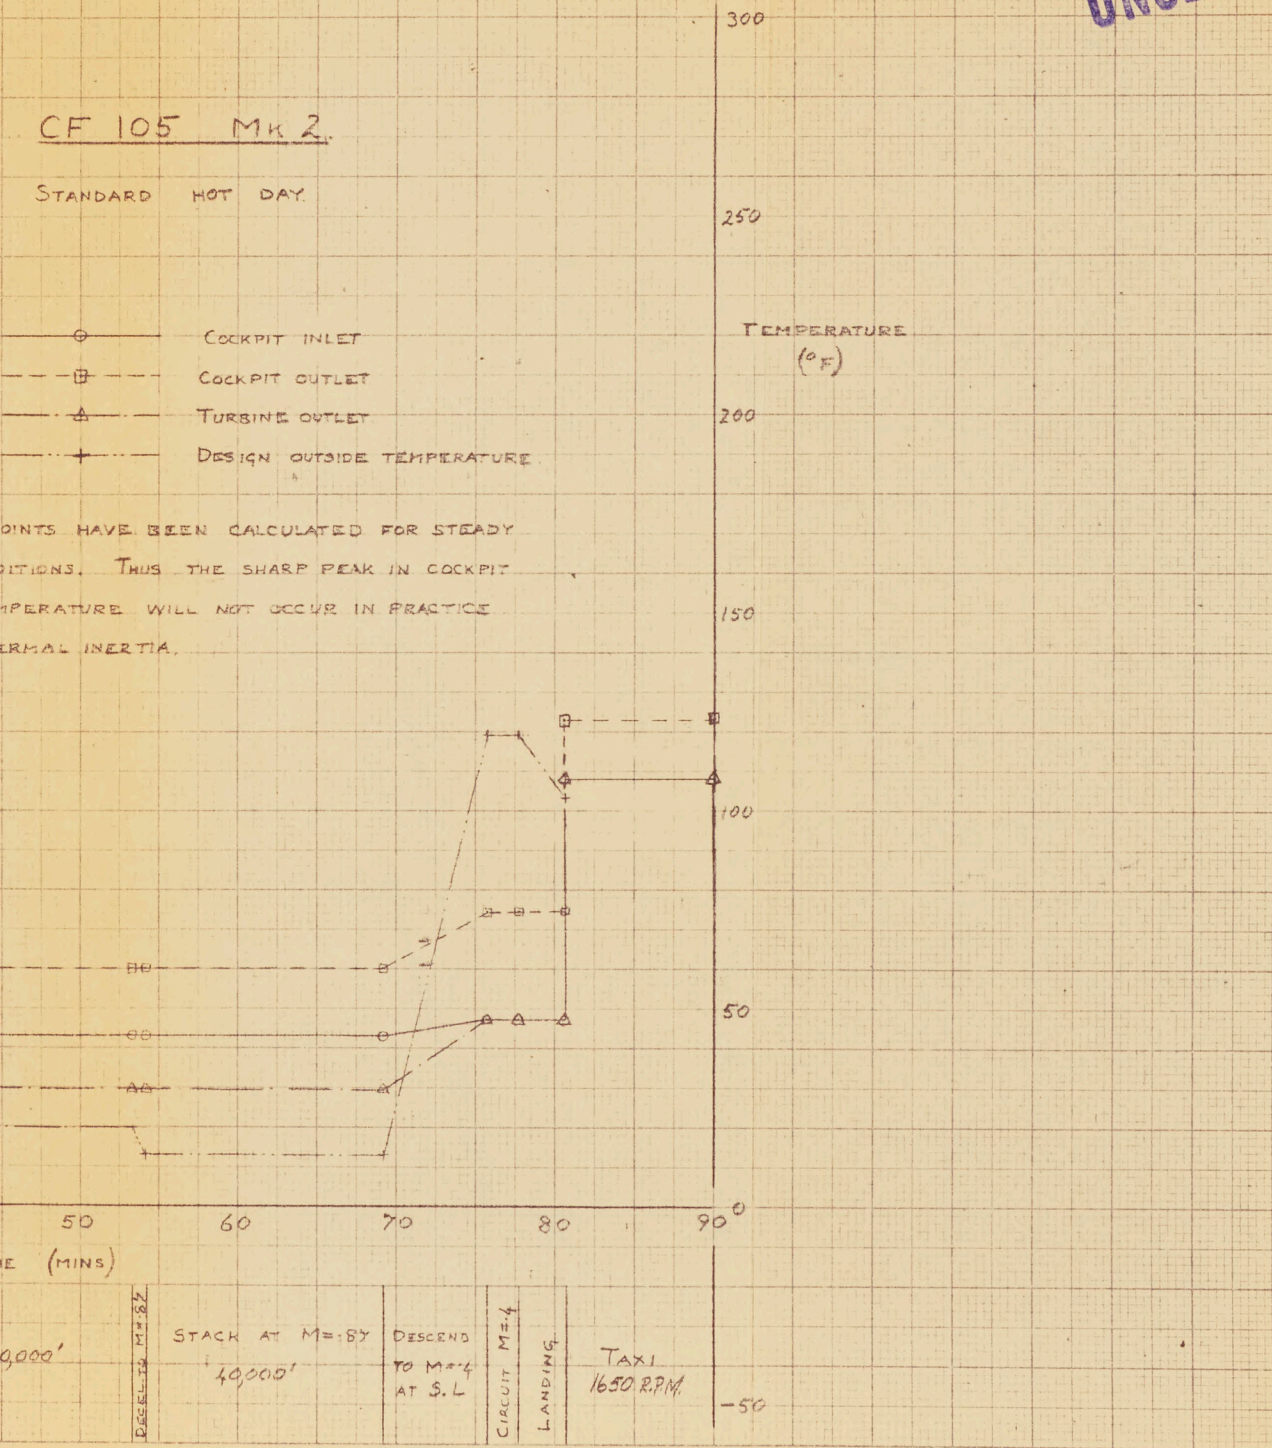 300
CF 105 MK 2.
STANDARD HOT DAY.
250
COCKPIT INLET
TEMPERATURE
(°F)
COCKPIT OUTLET
TURBINE OUTLET
200
DESIGN OUTSIDE TEMPERATURE
OINTS HAVE BEEN CALCULATED FOR STEADY
DITIONS. THUS THE SHARP PEAK IN COCKPIT
MPERATURE WILL NOT OCCUR IN PRACTICE
ERMAL INERTIA.
150
100
50
0
50 60 70 80 90
(MINS)
DECEL TO M=.87
STACK AT M=.87
40,000'
DESCEND
TO M=.4
AT S.L
CIRCUIT M=.4
LANDING
TAXI
1650 R.P.M.
0,000'
-50